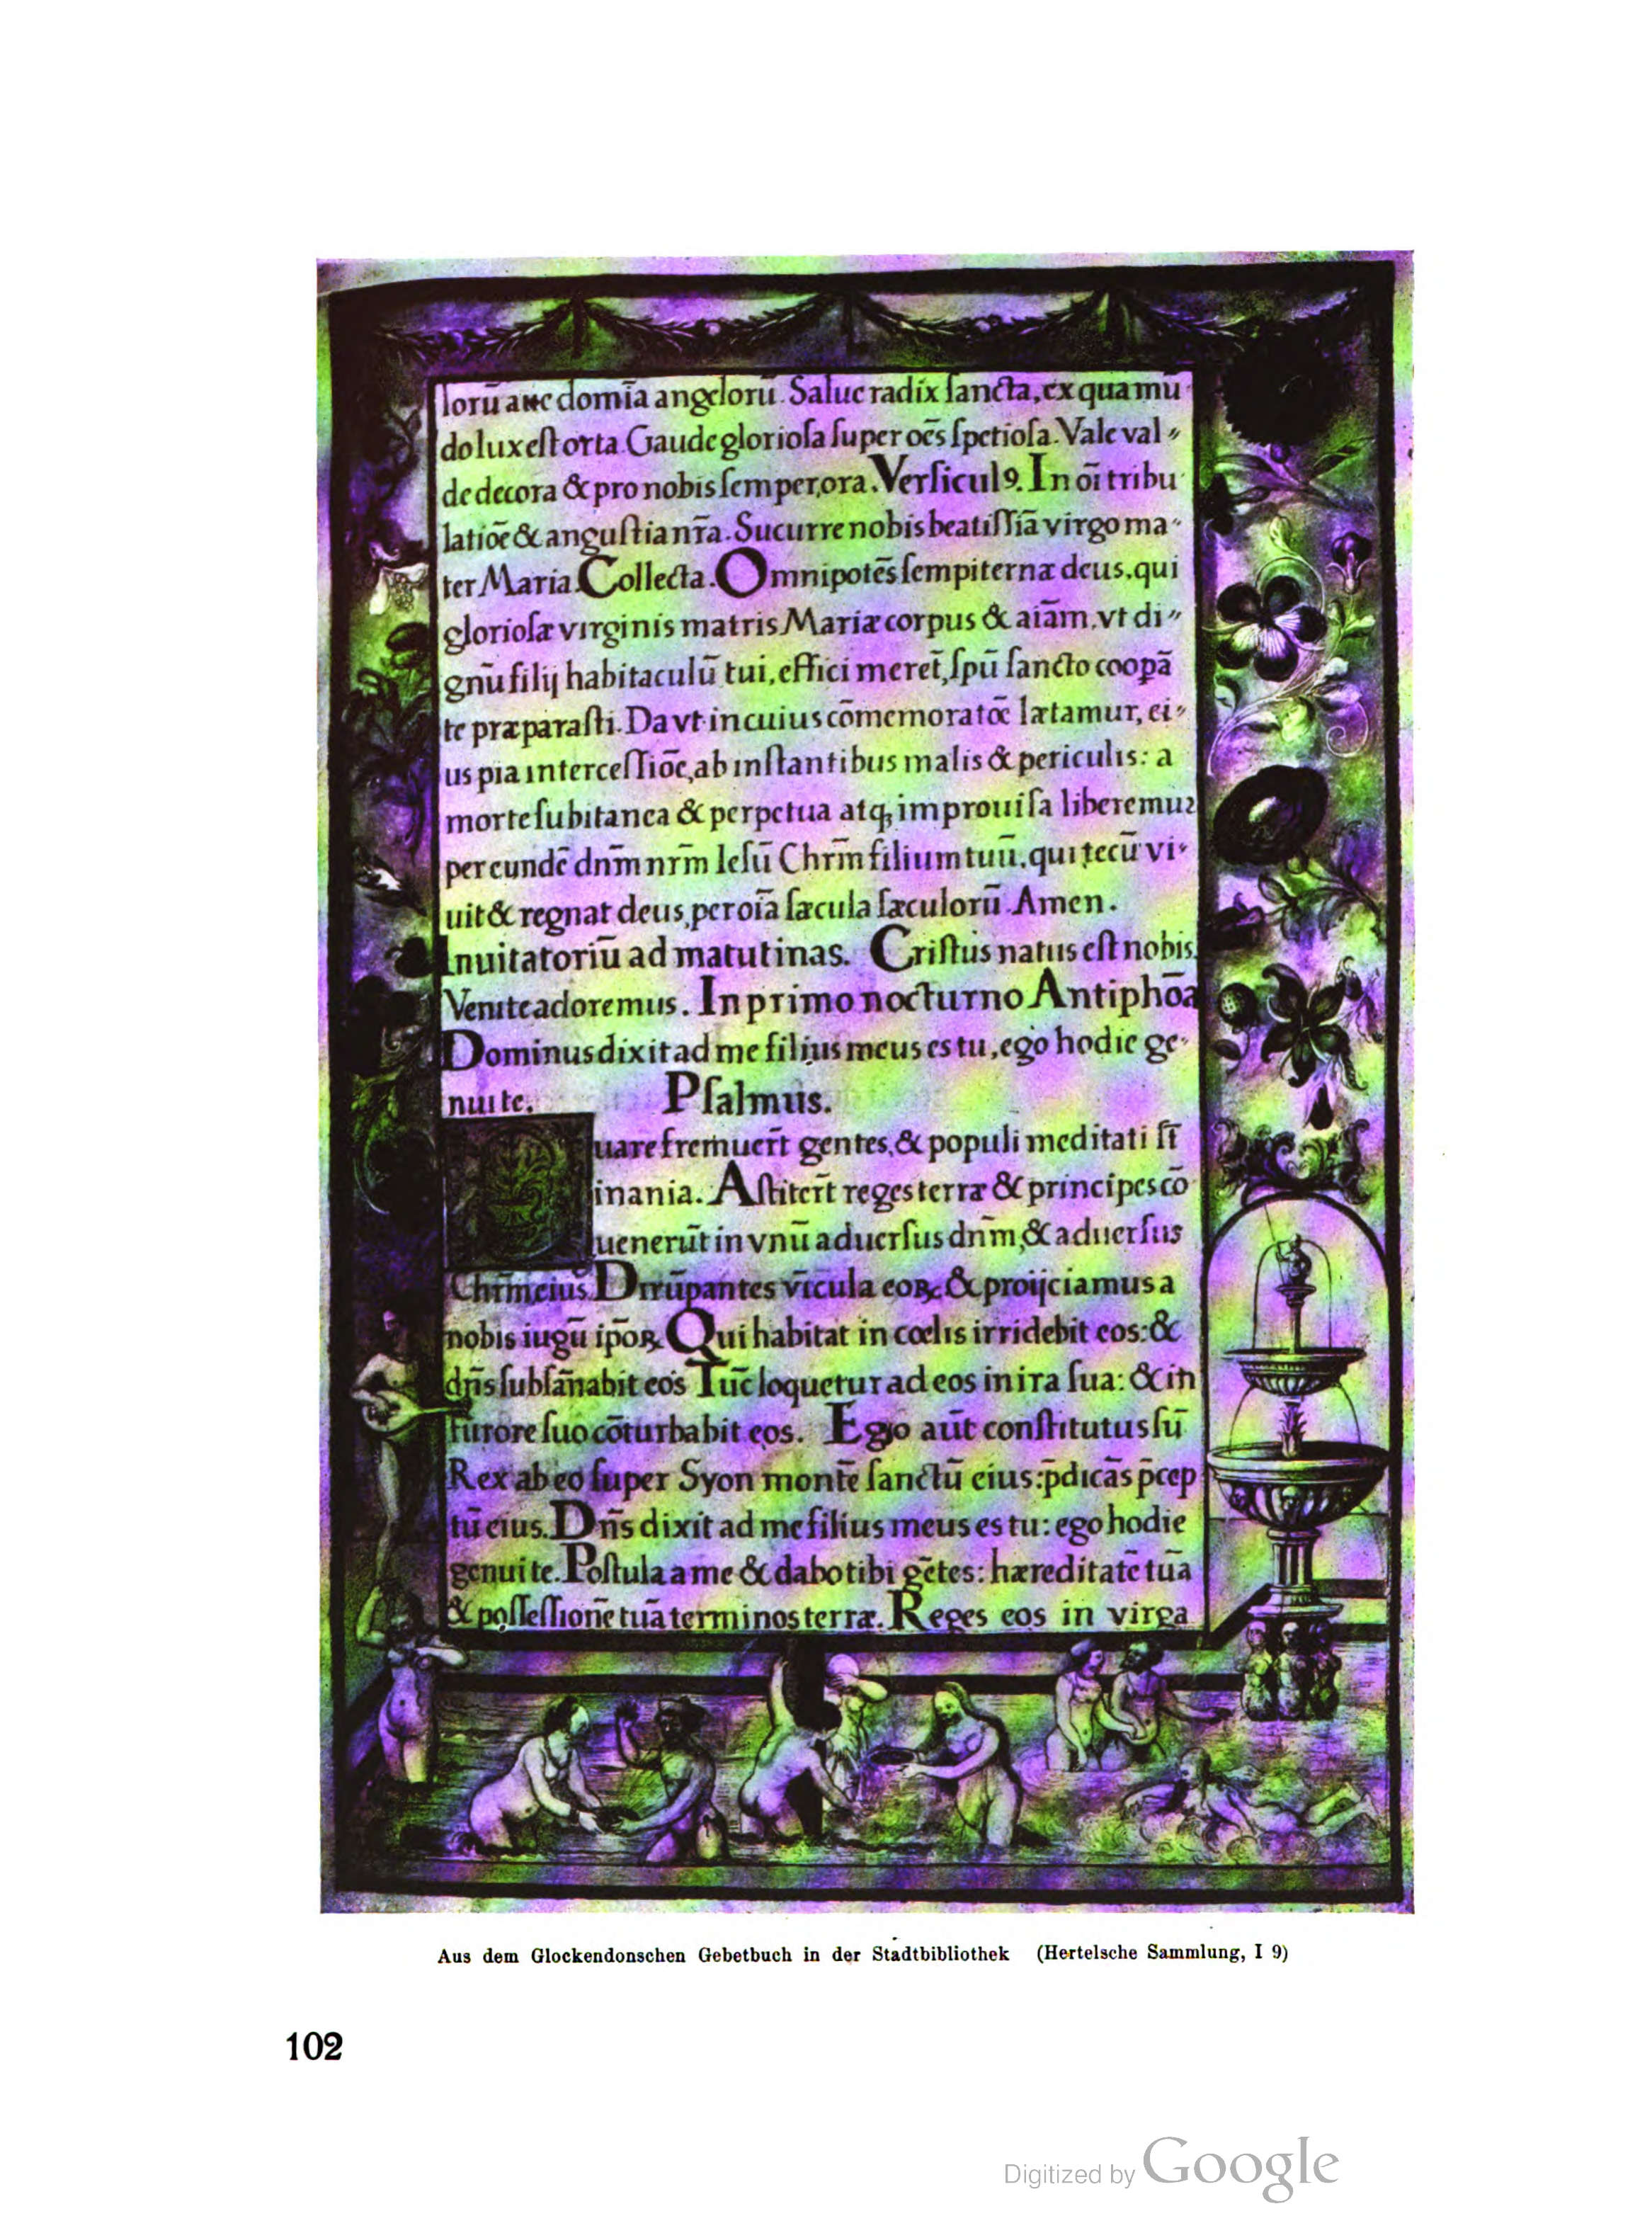 lorū aue domīa angelorū. Salue radix ſancta, ex qua mū
do lux eſt orta. Gaude glorioſa ſuper oēs ſpetioſa. Vale val〃
de decora & pro nobis ſemper, ora. Verſicul9. In oī tribu
latiōē & anguſtia nr̄a. Sucurre nobis beatiſſīa virgo ma〃
ter Maria. Collecta. Omnipotēs ſempiternæ deus, qui
glorioſæ virginis matris Mariæ corpus & aīam, vt di〃
gnū filij habitaculū tui, effici meret̄, ſpū ſancto coopā
te præparaſti. Da vt in cuius cōmemoratōe lætamur, ei〃
us pia interceſſiōe, ab inſtantibus malis & periculis: a
morte ſubitanea & perpetua atq; improuiſa liberemur
per eundē dnm̄ nrm̄ Ieſū Chrm̄ filium tuū, qui tecū vi〃
uit & regnat deus, per oīa ſæcula ſæculorū. Amen.
Inuitatoriū ad matutinas. Criſtus natus eſt nobis.
Venite adoremus. In primo nocturno Antiphōa
Dominus dixit ad me filius meus es tu, ego hodie ge〃
nui te. Pſalmus.
Quare fremuer̄t gentes, & populi meditati ſt̄
inania. Aſtiter̄t reges terræ & principes cō
uenerūt in vnū aduerſus dnm̄, & aduerſus
Chrm̄ eius. Dirrūpantes vīcula eoꝝ & proijciamus a
nobis iugū ip̄oꝝ. Qui habitat in cœlis irridebit eos: &
dn̄s ſubſānabit eos Tūc loquetur ad eos in ira ſua: & in
furore ſuo cōturbabit eos. Ego aūt conſtitutus ſū
Rex ab eo ſuper Syon montē ſanctū eius: p̄dicās p̄cep
tū eius. Dn̄s dixit ad me filius meus es tu: ego hodie
genui te. Poſtula a me & dabo tibi gētes: hæreditatē tuā
& poſſeſſionē tuā terminos terræ. Reges eos in virga
Aus dem Glockendonschen Gebetbuch in der Stadtbibliothek (Hertelsche Sammlung, I 9)
102
Digitized by Google